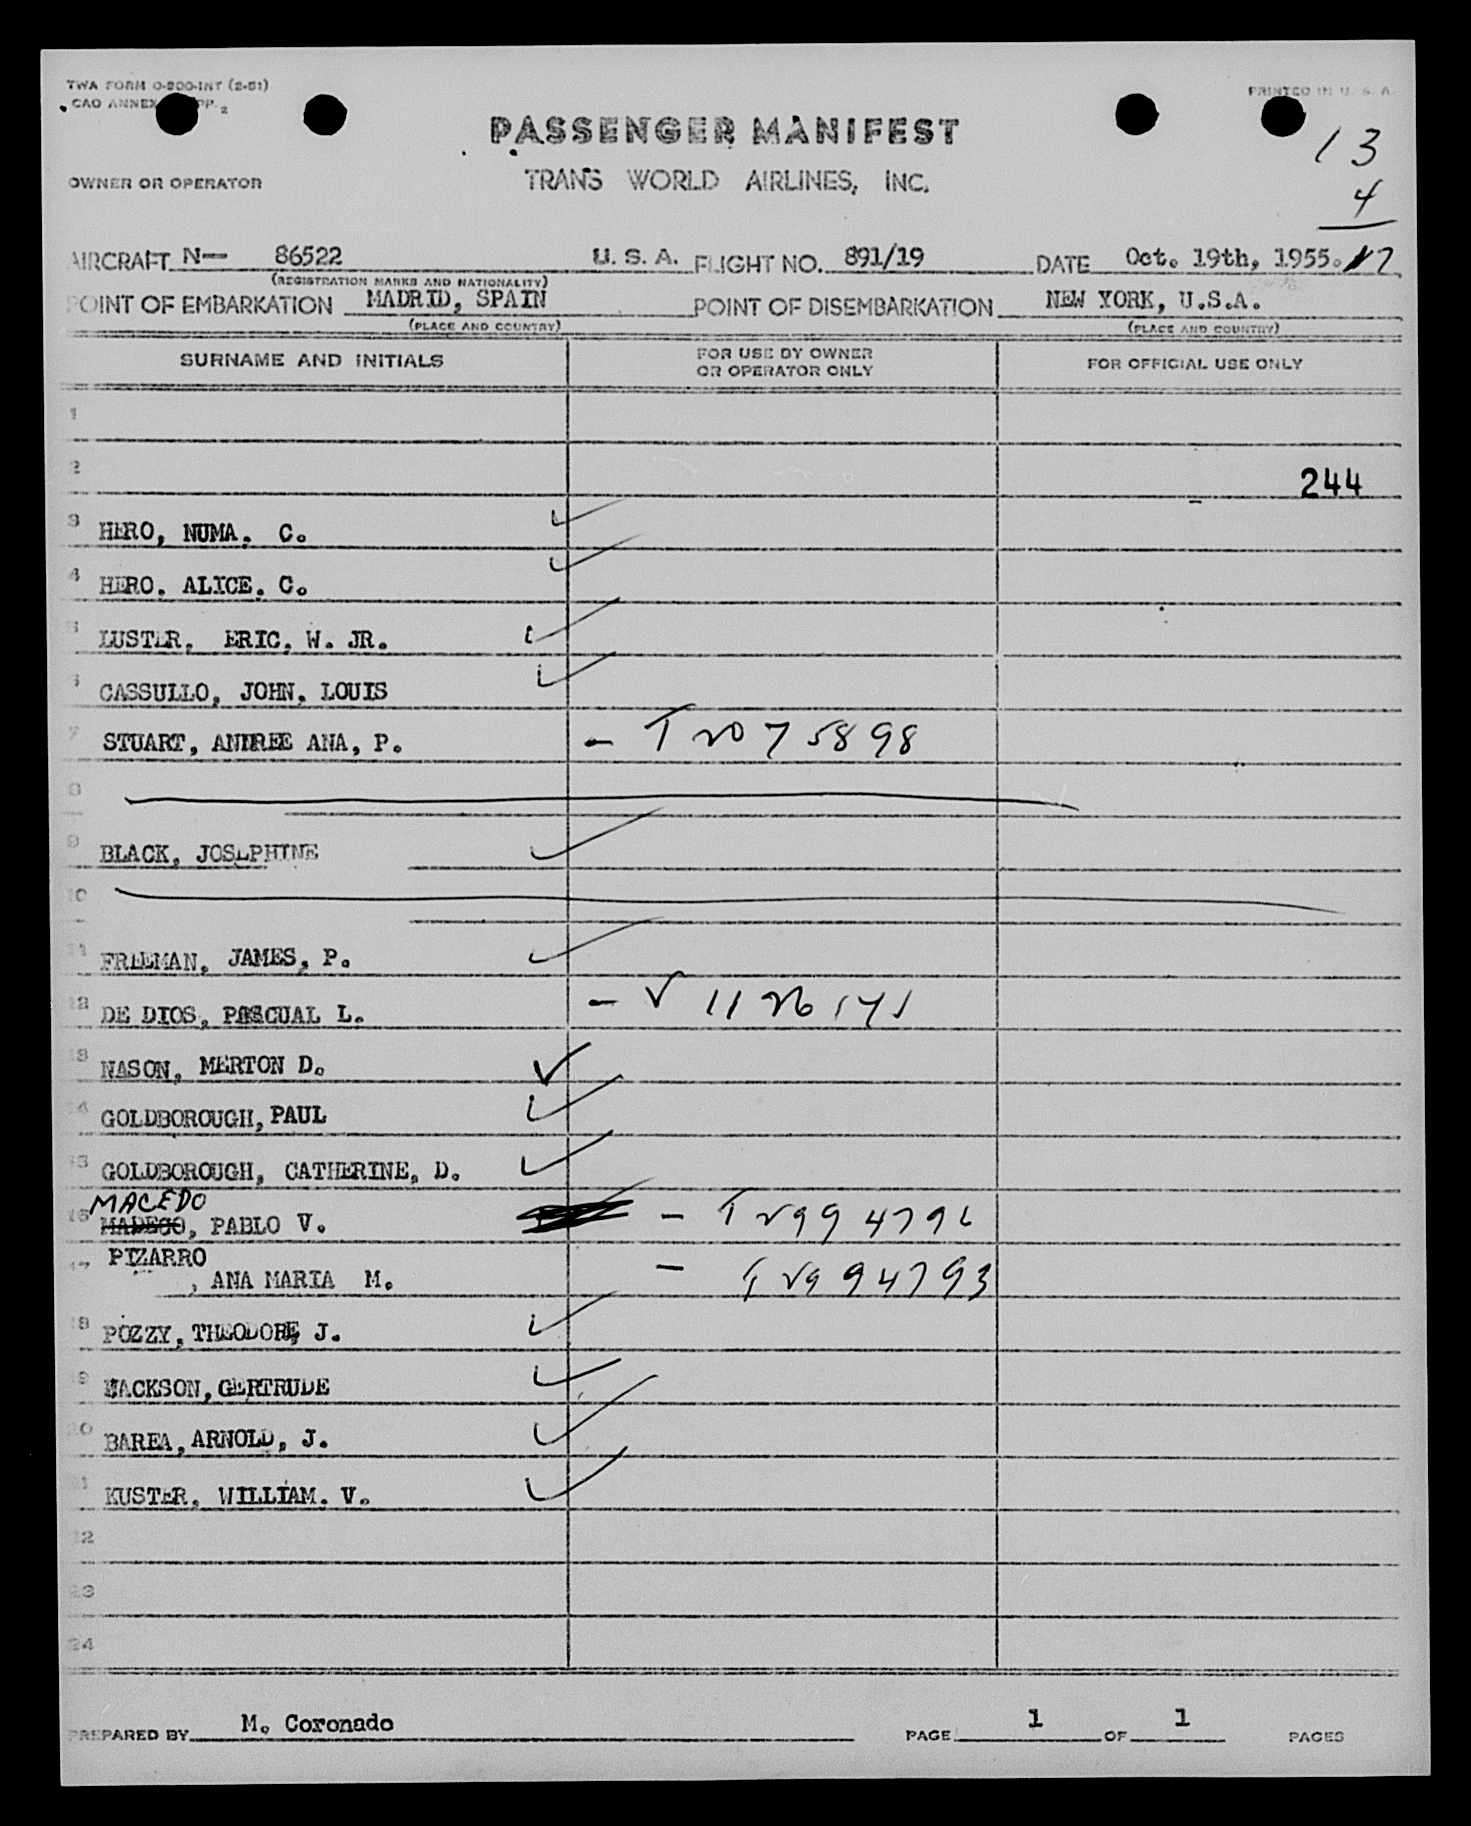 TWA FORM O-200-INT (2-51)
PRINTED IN U. S. A.
CAO ANNEX PP. 2
PASSENGER MANIFEST
13
OWNER OR OPERATOR
TRANS WORLD AIRLINES, INC.
4
AIRCRAFT N— 86522 U. S. A. FLIGHT NO. 891/19 DATE Oct. 19th, 1955. 17
(REGISTRATION MARKS AND NATIONALITY)
POINT OF EMBARKATION MADRID, SPAIN POINT OF DISEMBARKATION NEW YORK, U.S.A.
(PLACE AND COUNTRY) (PLACE AND COUNTRY)
SURNAME AND INITIALS FOR USE BY OWNER OR OPERATOR ONLY FOR OFFICIAL USE ONLY
1
2 244
3 HERO, NUMA. C.
4 HERO. ALICE. C.
5 LUSTER. ERIC. W. JR.
6 CASSULLO, JOHN. LOUIS
7 STUART, ANDREE ANA, P. — T2075898
8
9 BLACK, JOSEPHINE
10
11 FREEMAN. JAMES, P.
12 DE DIOS, PASCUAL L. — V 1126141
13 NASON, MERTON D.
14 GOLDBOROUGH, PAUL
15 GOLDBOROUGH, CATHERINE, D.
MACEDO
16 MADEGO, PABLO V. — T2994792
PIZARRO
17 , ANA MARIA M. — T2994793
18 POZZY, THEODORE, J.
19 JACKSON, GERTRUDE
20 BAREA, ARNOLD, J.
21 KUSTER. WILLIAM. V.
22
23
24
PREPARED BY M. Coronado PAGE 1 OF 1 PAGES